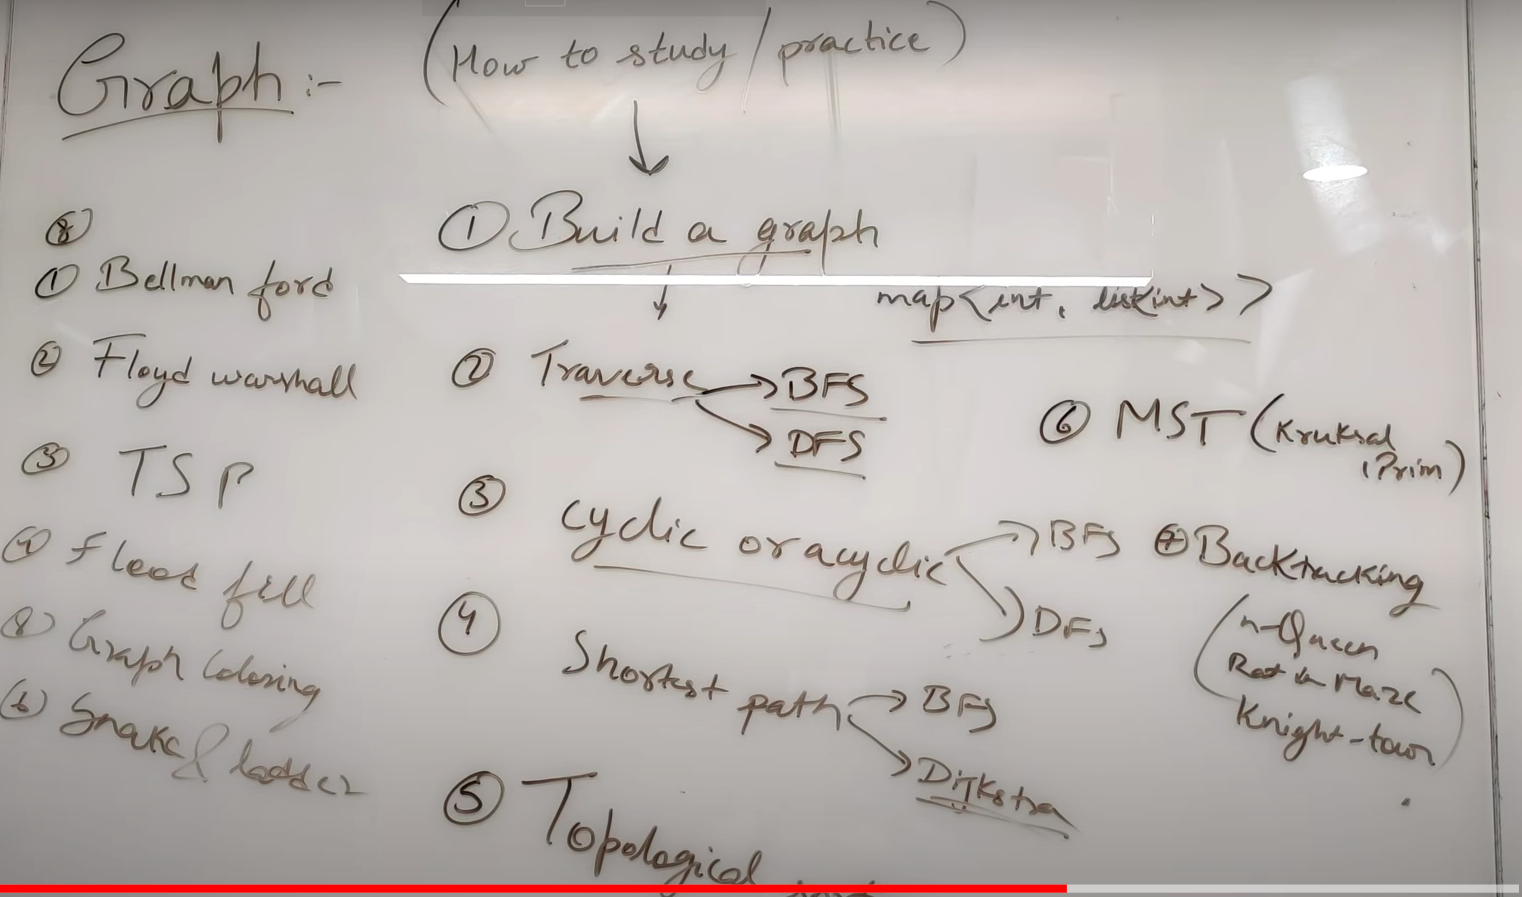 Graph :- (How to study / practice)
① Build a graph
map<int, list<int>>
② Traverse → BFS
→ DFS
③ cyclic or acyclic → BFS
→ DFS
④ Shortest path → BFS
→ Dijkstra
⑤ Topological
⑥ MST (Kruksal
, Prim)
⑦ Backtracking
(n-Queen
Rat in Maze
Knight-tour)
⑧
① Bellman ford
② Floyd warshall
③ TSP
④ Flood fill
Graph Coloring
⑥ Snake & ladder